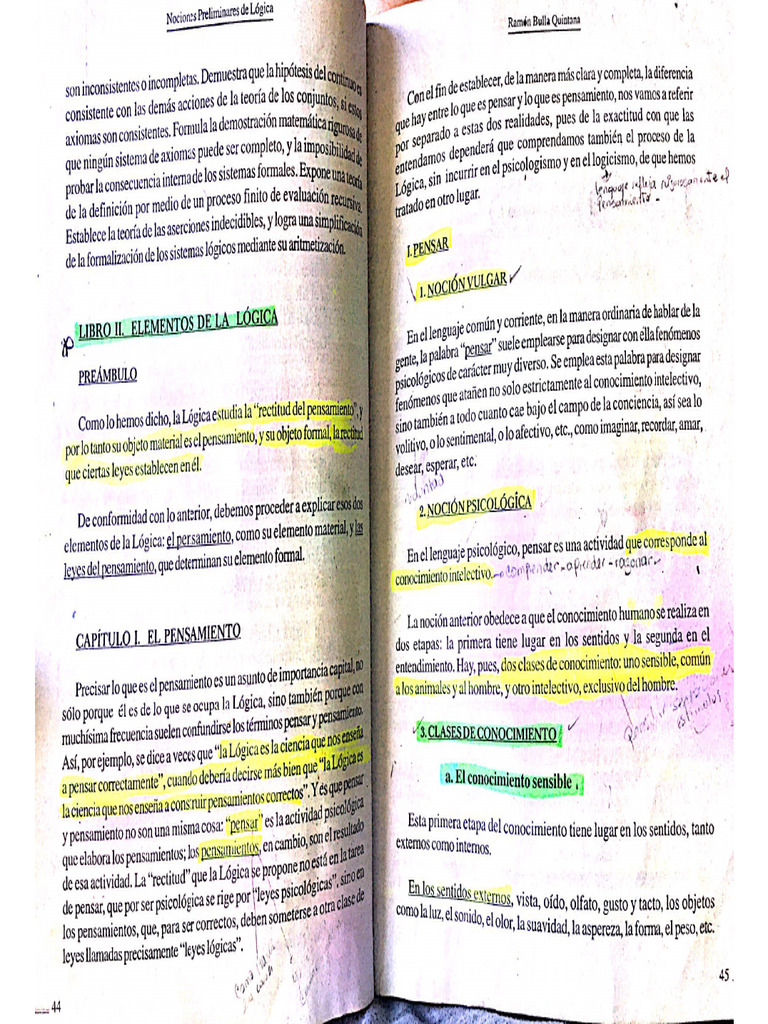 Nociones Preliminares de Lógica
son inconsistentes o incompletas. Demuestra que la hipótesis del continuo es
consistente con las demás acciones de la teoría de los conjuntos, si estos
axiomas son consistentes. Formula la demostración matemática rigurosa de
que ningún sistema de axiomas puede ser completo, y la imposibilidad de
probar la consecuencia interna de los sistemas formales. Expone una teoría
de la definición por medio de un proceso finito de evaluación recursiva.
Establece la teoría de las aserciones indecidibles, y logra una simplificación
de la formalización de los sistemas lógicos mediante su aritmetización.
LIBRO II. ELEMENTOS DE LA LÓGICA
PREÁMBULO
Como lo hemos dicho, la Lógica estudia la "rectitud del pensamiento", y
por lo tanto su objeto material es el pensamiento, y su objeto formal, la rectitud
que ciertas leyes establecen en él.
De conformidad con lo anterior, debemos proceder a explicar esos dos
elementos de la Lógica: el pensamiento, como su elemento material, y las
leyes del pensamiento, que determinan su elemento formal.
CAPÍTULO I. EL PENSAMIENTO
Precisar lo que es el pensamiento es un asunto de importancia capital, no
sólo porque él es de lo que se ocupa la Lógica, sino también porque con
muchísima frecuencia suelen confundirse los términos pensar y pensamiento.
Así, por ejemplo, se dice a veces que "la Lógica es la ciencia que nos enseña
a pensar correctamente", cuando debería decirse más bien que "la Lógica es
la ciencia que nos enseña a construir pensamientos correctos". Y es que pensar
y pensamiento no son una misma cosa: "pensar" es la actividad psicológica
que elabora los pensamientos; los pensamientos, en cambio, son el resultado
de esa actividad. La "rectitud" que la Lógica se propone no está en la tarea
de pensar, que por ser psicológica se rige por "leyes psicológicas", sino en
los pensamientos, que, para ser correctos, deben someterse a otra clase de
leyes llamadas precisamente "leyes lógicas".
44
Ramón Bulla Quintana
Con el fin de establecer, de la manera más clara y completa, la diferencia
que hay entre lo que es pensar y lo que es pensamiento, nos vamos a referir
por separado a estas dos realidades, pues de la exactitud con que las
entendamos dependerá que comprendamos también el proceso de la
Lógica, sin incurrir en el psicologismo y en el logicismo, de que hemos
tratado en otro lugar.
lenguaje refleja rigurosamente el
pensamiento
I. PENSAR
1. NOCIÓN VULGAR
En el lenguaje común y corriente, en la manera ordinaria de hablar de la
gente, la palabra "pensar" suele emplearse para designar con ella fenómenos
psicológicos de carácter muy diverso. Se emplea esta palabra para designar
fenómenos que atañen no solo estrictamente al conocimiento intelectivo,
sino también a todo cuanto cae bajo el campo de la conciencia, así sea lo
volitivo, o lo sentimental, o lo afectivo, etc., como imaginar, recordar, amar,
desear, esperar, etc.
2. NOCIÓN PSICOLÓGICA
En el lenguaje psicológico, pensar es una actividad que corresponde al
conocimiento intelectivo. - comprender - aprender - razonar -
La noción anterior obedece a que el conocimiento humano se realiza en
dos etapas: la primera tiene lugar en los sentidos y la segunda en el
entendimiento. Hay, pues, dos clases de conocimiento: uno sensible, común
a los animales y al hombre, y otro intelectivo, exclusivo del hombre.
3. CLASES DE CONOCIMIENTO
a. El conocimiento sensible
Esta primera etapa del conocimiento tiene lugar en los sentidos, tanto
externos como internos.
En los sentidos externos, vista, oído, olfato, gusto y tacto, los objetos
como la luz, el sonido, el olor, la suavidad, la aspereza, la forma, el peso, etc.
45